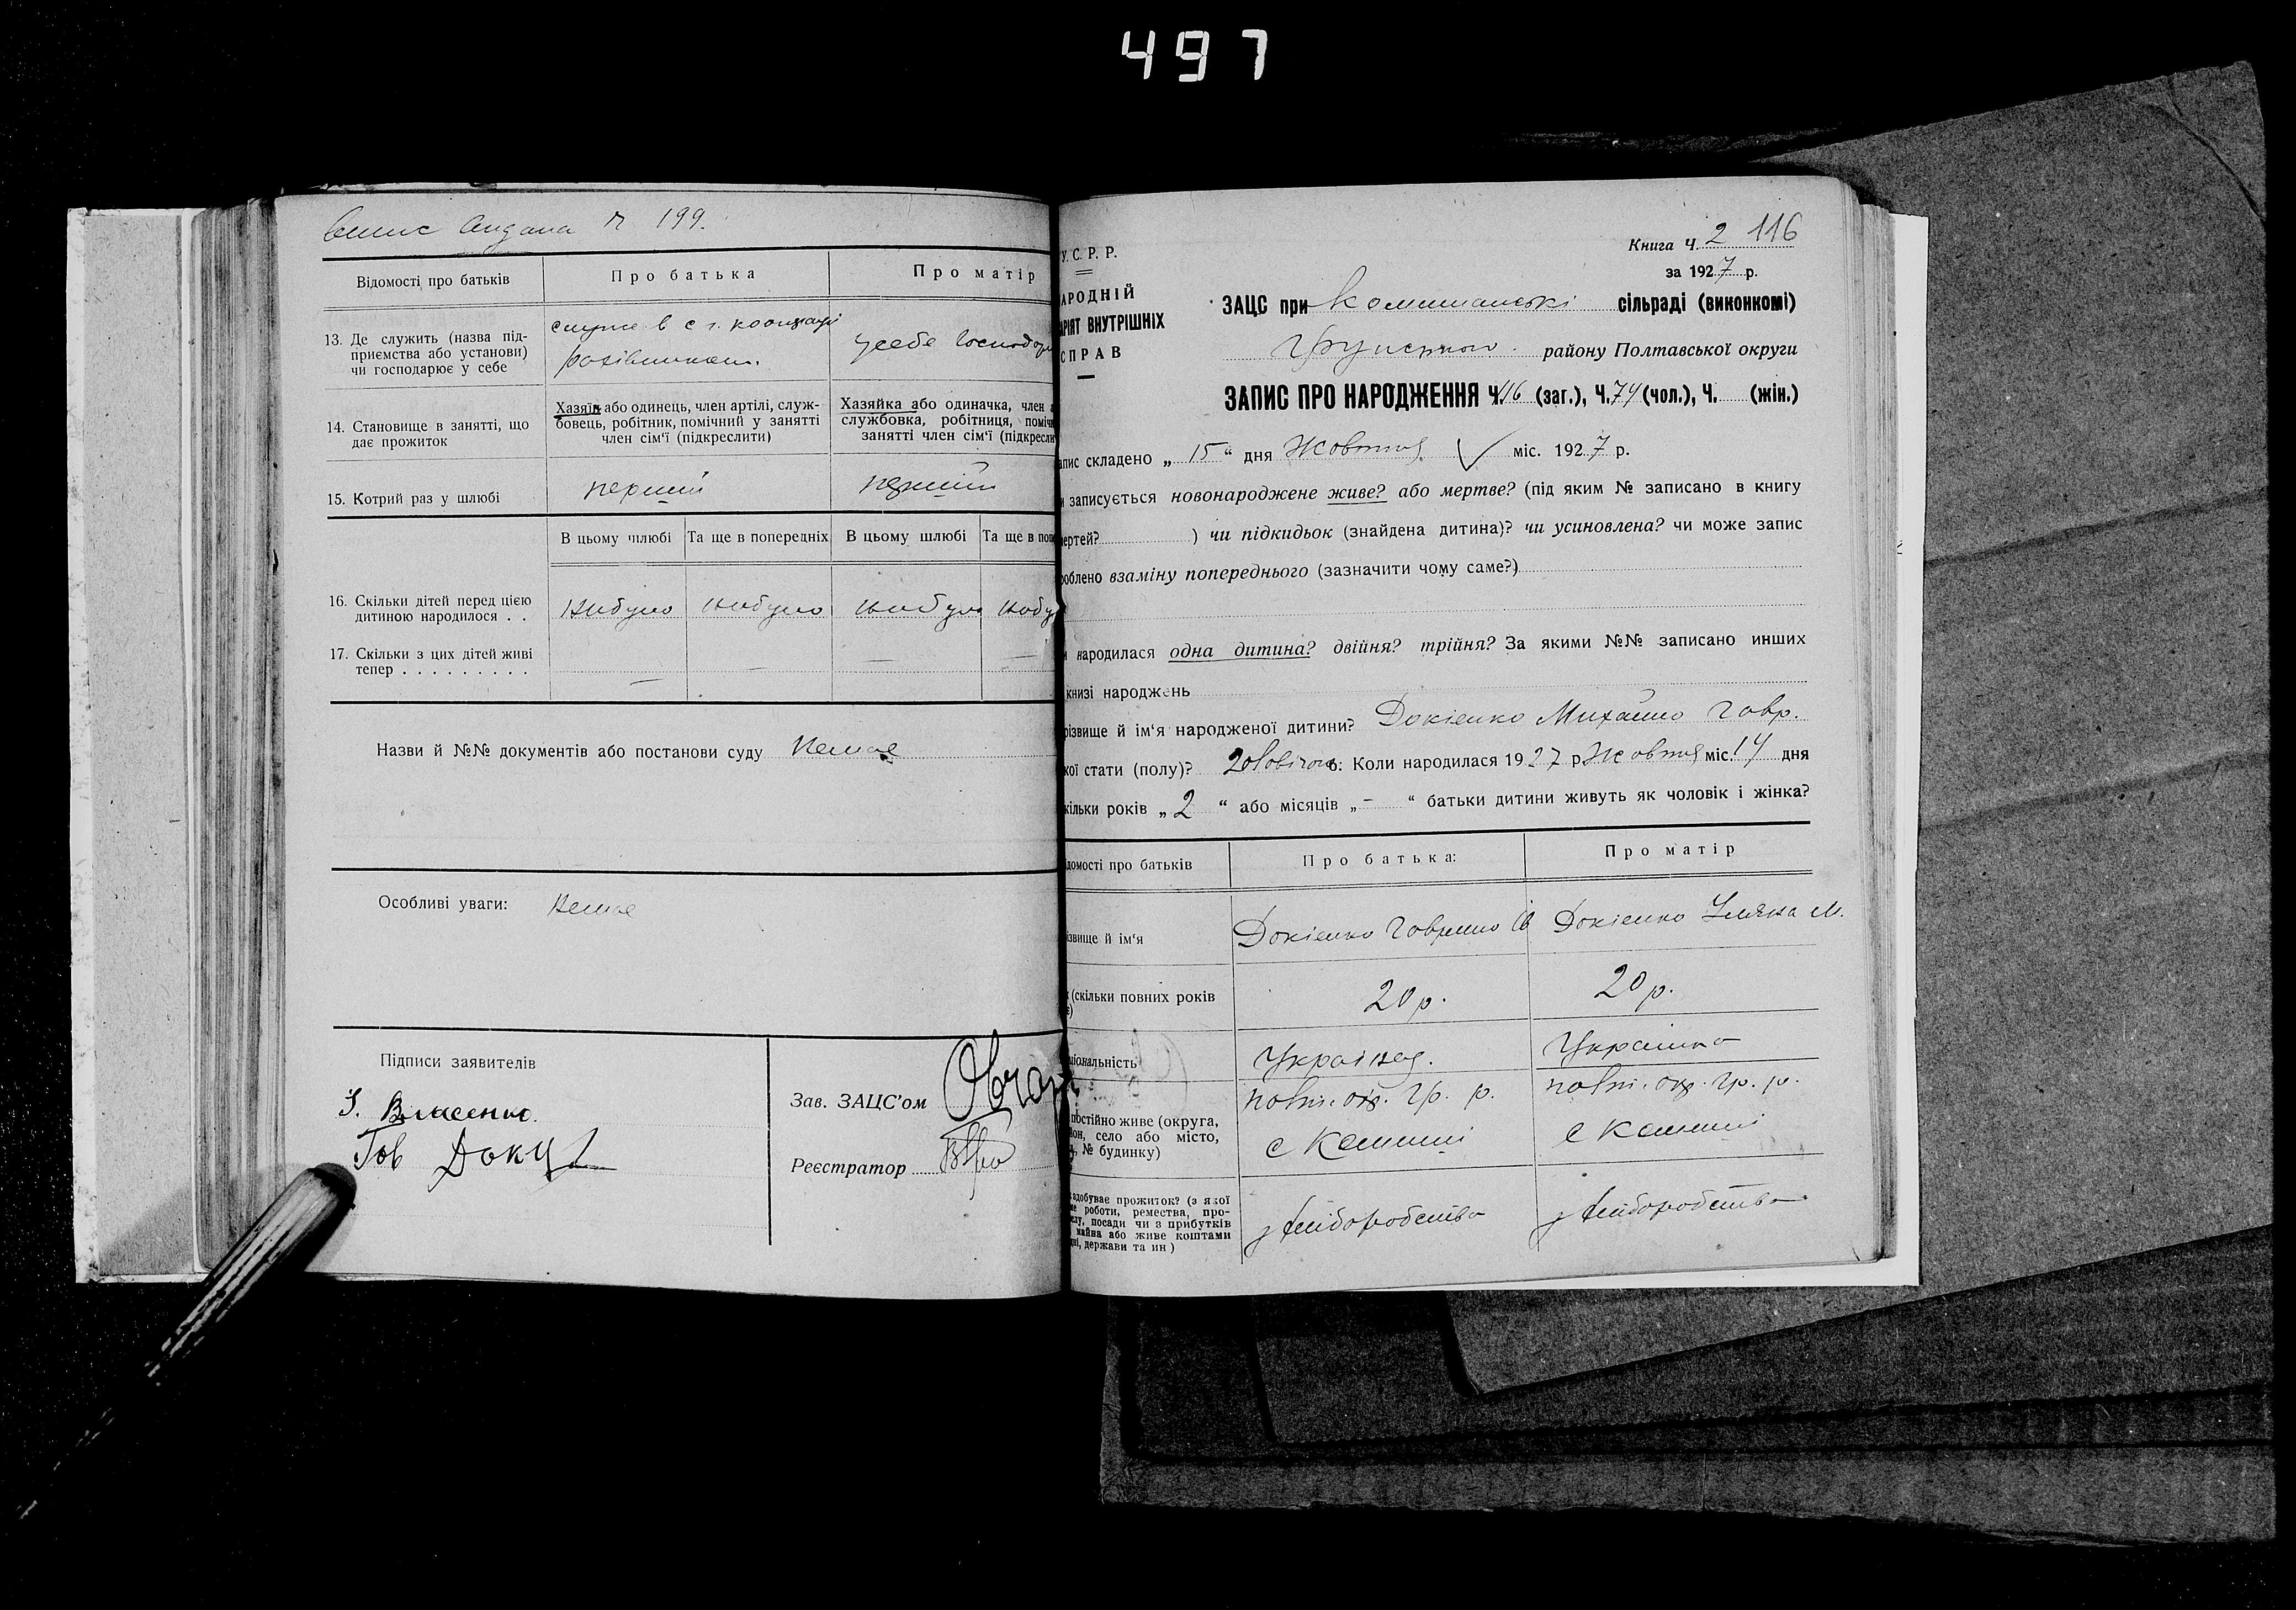 497
Виписъ видана № 199.
Відомості про батьків
Про батька
Про матір
13. Де служить (назва під-
приємства або установи)
чи господарює у себе
служе в с г. кооперації
у себе господар
14. Становище в занятті, що
дає прожиток
Хазяїн або одинець, член артілі, служ-
бовець, робітник, помічний у занятті
член сім'ї (підкреслити)
Хазяйка або одиначка, член а
службовка, робітниця, поміч
занятті член сім'ї (підкресли
15. Котрий раз у шлюбі
перший
перший
В цьому шлюбі
Та ще в попередніх
В цьому шлюбі
Та ще в поп
16. Скільки дітей перед цією
дитиною народилося . .
Небуло
небуло
небуло
небу
17. Скільки з цих дітей живі
тепер . . . . . . . . .
—
—
—
—
Назви й №№ документів або постанови суду Немає
Особливі уваги: Немає
Підписи заявителів
Власенко.
Гов Докц
Зав. ЗАЦС'ом
Реєстратор
У.С.Р.Р.
АРОДНІЙ
АРІЯТ ВНУТРІШНІХ
СПРАВ
Книга Ч. 2 116
за 1927 р.
ЗАЦС при Комишанські сільраді (виконкомі)
Грунського району Полтавської округи
ЗАПИС ПРО НАРОДЖЕННЯ Ч. 116 (заг.), Ч. 74 (чол.), Ч. (жін.)
апис складено „ 15 “ дня Жовтня міс. 1927 р.
и записується новонароджене живе? або мертве? (під яким № записано в книгу
ертей? ) чи підкидьок (знайдена дитина)? чи усиновлена? чи може запис
облено взаміну попереднього (зазначити чому саме?)
и народилася одна дитина? двійня? трійня? За якими №№ записано инших
книзі народжень
різвище й ім'я народженої дитини? Докіенко Михайло Гавр.
кої стати (полу)? Коли народилася 1927 р Жовтня міс. 14 дня
кільки років „ 2 “ або місяців „ - “ батьки дитини живуть як чоловік і жінка?
ідомості про батьків
Про батька:
Про матір
ізвище й ім'я
Докіенко Говрило Ів
Докіенко Уляна М.
(скільки повних років
20 р.
20 р.
ціональність
Україна.
Украінка
постійно живе (округа,
йон, село або місто,
№ будинку)
Полт. окр. Гр. р.
с Комиші
Полт. окр. Гр. р.
с Комиші
здобуває прожиток? (з якої
ме роботи, ремества, про-
слу, посади чи з прибутків
майна або живе коштами
дні, держави та ин)
з хліборобства
з хліборобства